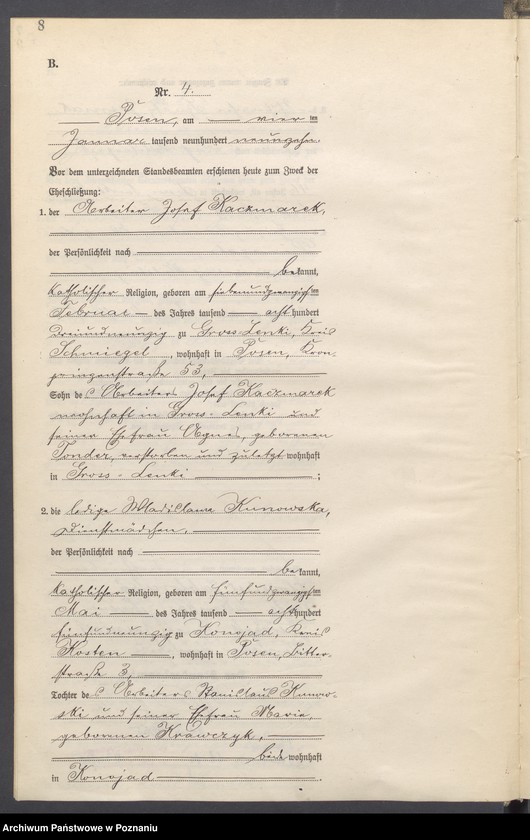 8
B.
Nr. 4.
Posen, am vier ten
Januar tausend neunhundert neunzehn.
Vor dem unterzeichneten Standesbeamten erschienen heute zum Zweck der
Eheschließung:
1. der Arbeiter Josef Kaczmarek,
der Persönlichkeit nach
bekannt,
katholischer Religion, geboren am siebenundzwanzigsten
Februar des Jahres tausend acht hundert
dreiundneunzig zu Gross-Lenki, Kreis
Schmiegel, wohnhaft in Posen, Kron-
prinzenstraße 53,
Sohn des Arbeiters Josef Kaczmarek
wohnhaft in Gross-Lenki und
seiner Ehefrau Agnes, geborenen
Tonder, verstorben und zuletzt wohnhaft
in Gross-Lenki ;
2. die ledige Wladislawa Kunowska,
Dienstmädchen,
der Persönlichkeit nach
bekannt,
katholischer Religion, geboren am fünfundzwanzigsten
Mai des Jahres tausend acht hundert
fünfundneunzig zu Konojad, Kreis
Kosten, wohnhaft in Posen, Ritter-
straße 3,
Tochter des Arbeiters Stanislaus Kunow-
ski und seiner Ehefrau Marie,
geborenen Krawczyk,
beide wohnhaft
in Konojad.
Archiwum Państwowe w Poznaniu